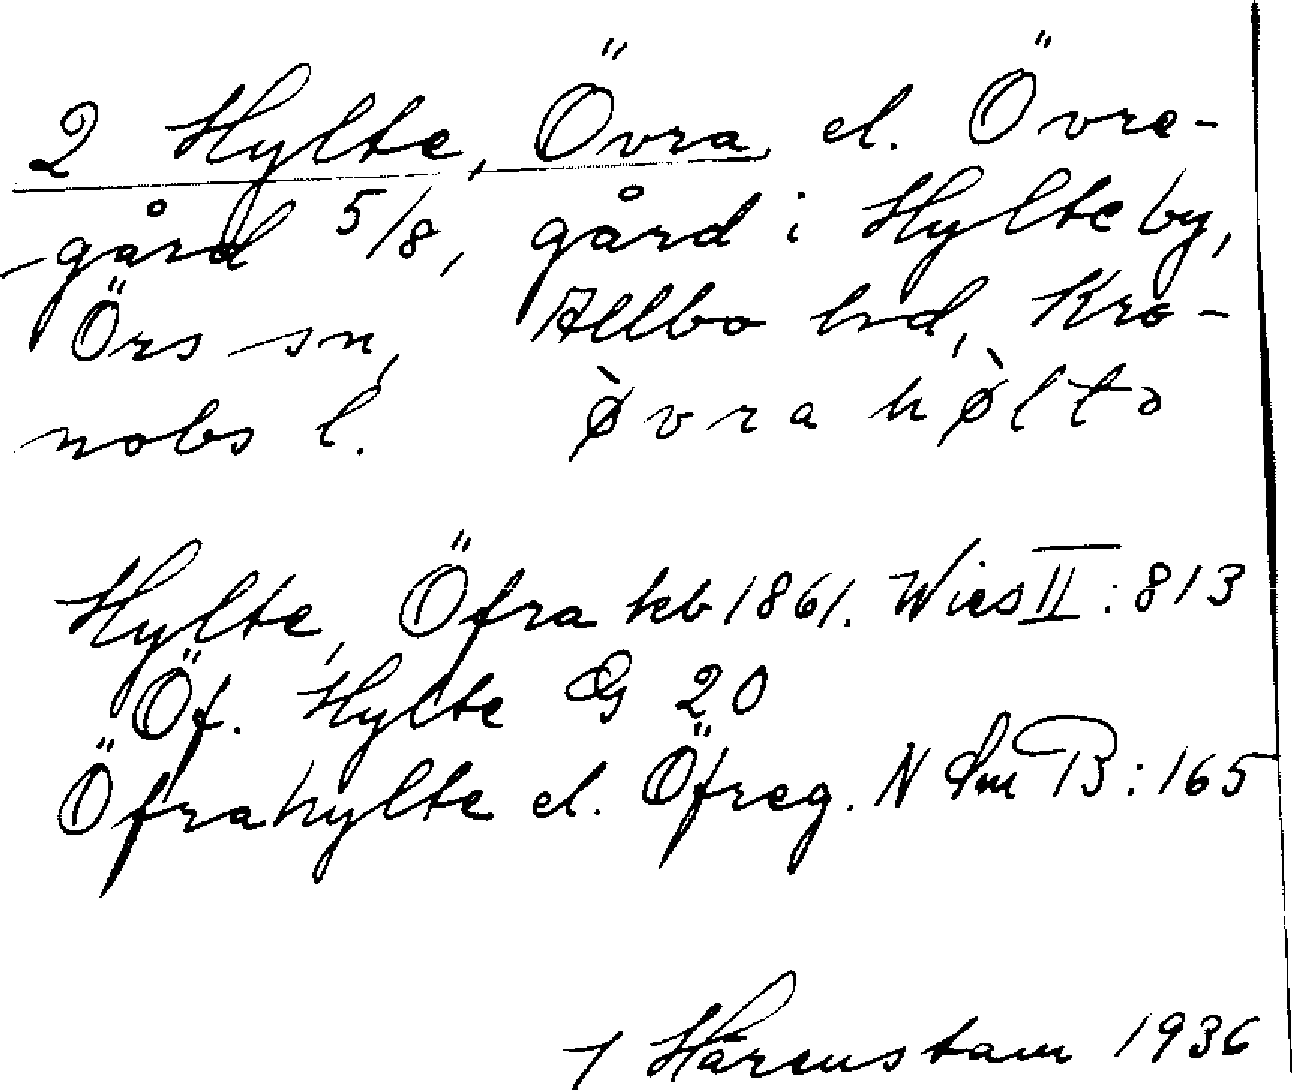 2 Hylte, Övra el. Övre-
gård 5/8, gård i Hylte by,
Örs sn, Allbo hd, Kro-
nobs l. ø̀vra hø̀ltə
Hylte, Öfra kb 1861. Wies II: 813
Öf. Hylte G 20
Öfrahylte el. Öfreg. N Sm B: 165
Härenstam 1936